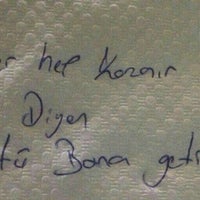 r hep Kazanır
Diyen
tü Bana geti